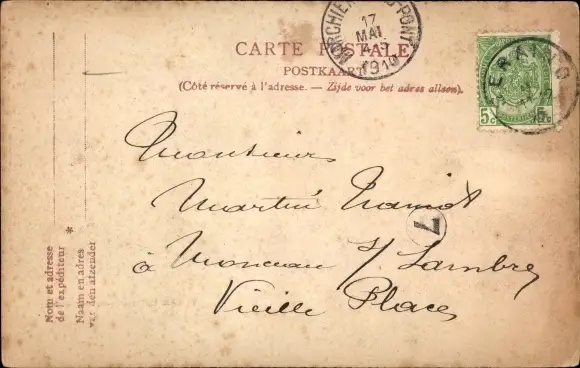 17
MAI
1910
CARTE POSTALE
POSTKAART
(Côté réservé à l'adresse. — Zijde voor het adres alleen).
5c 5c
Monsieur
Martin
7
à Monceau s/ Sambre
Vieille Place
Nom et adresse
de l'expéditeur
*
Naam en adres
van den afzender